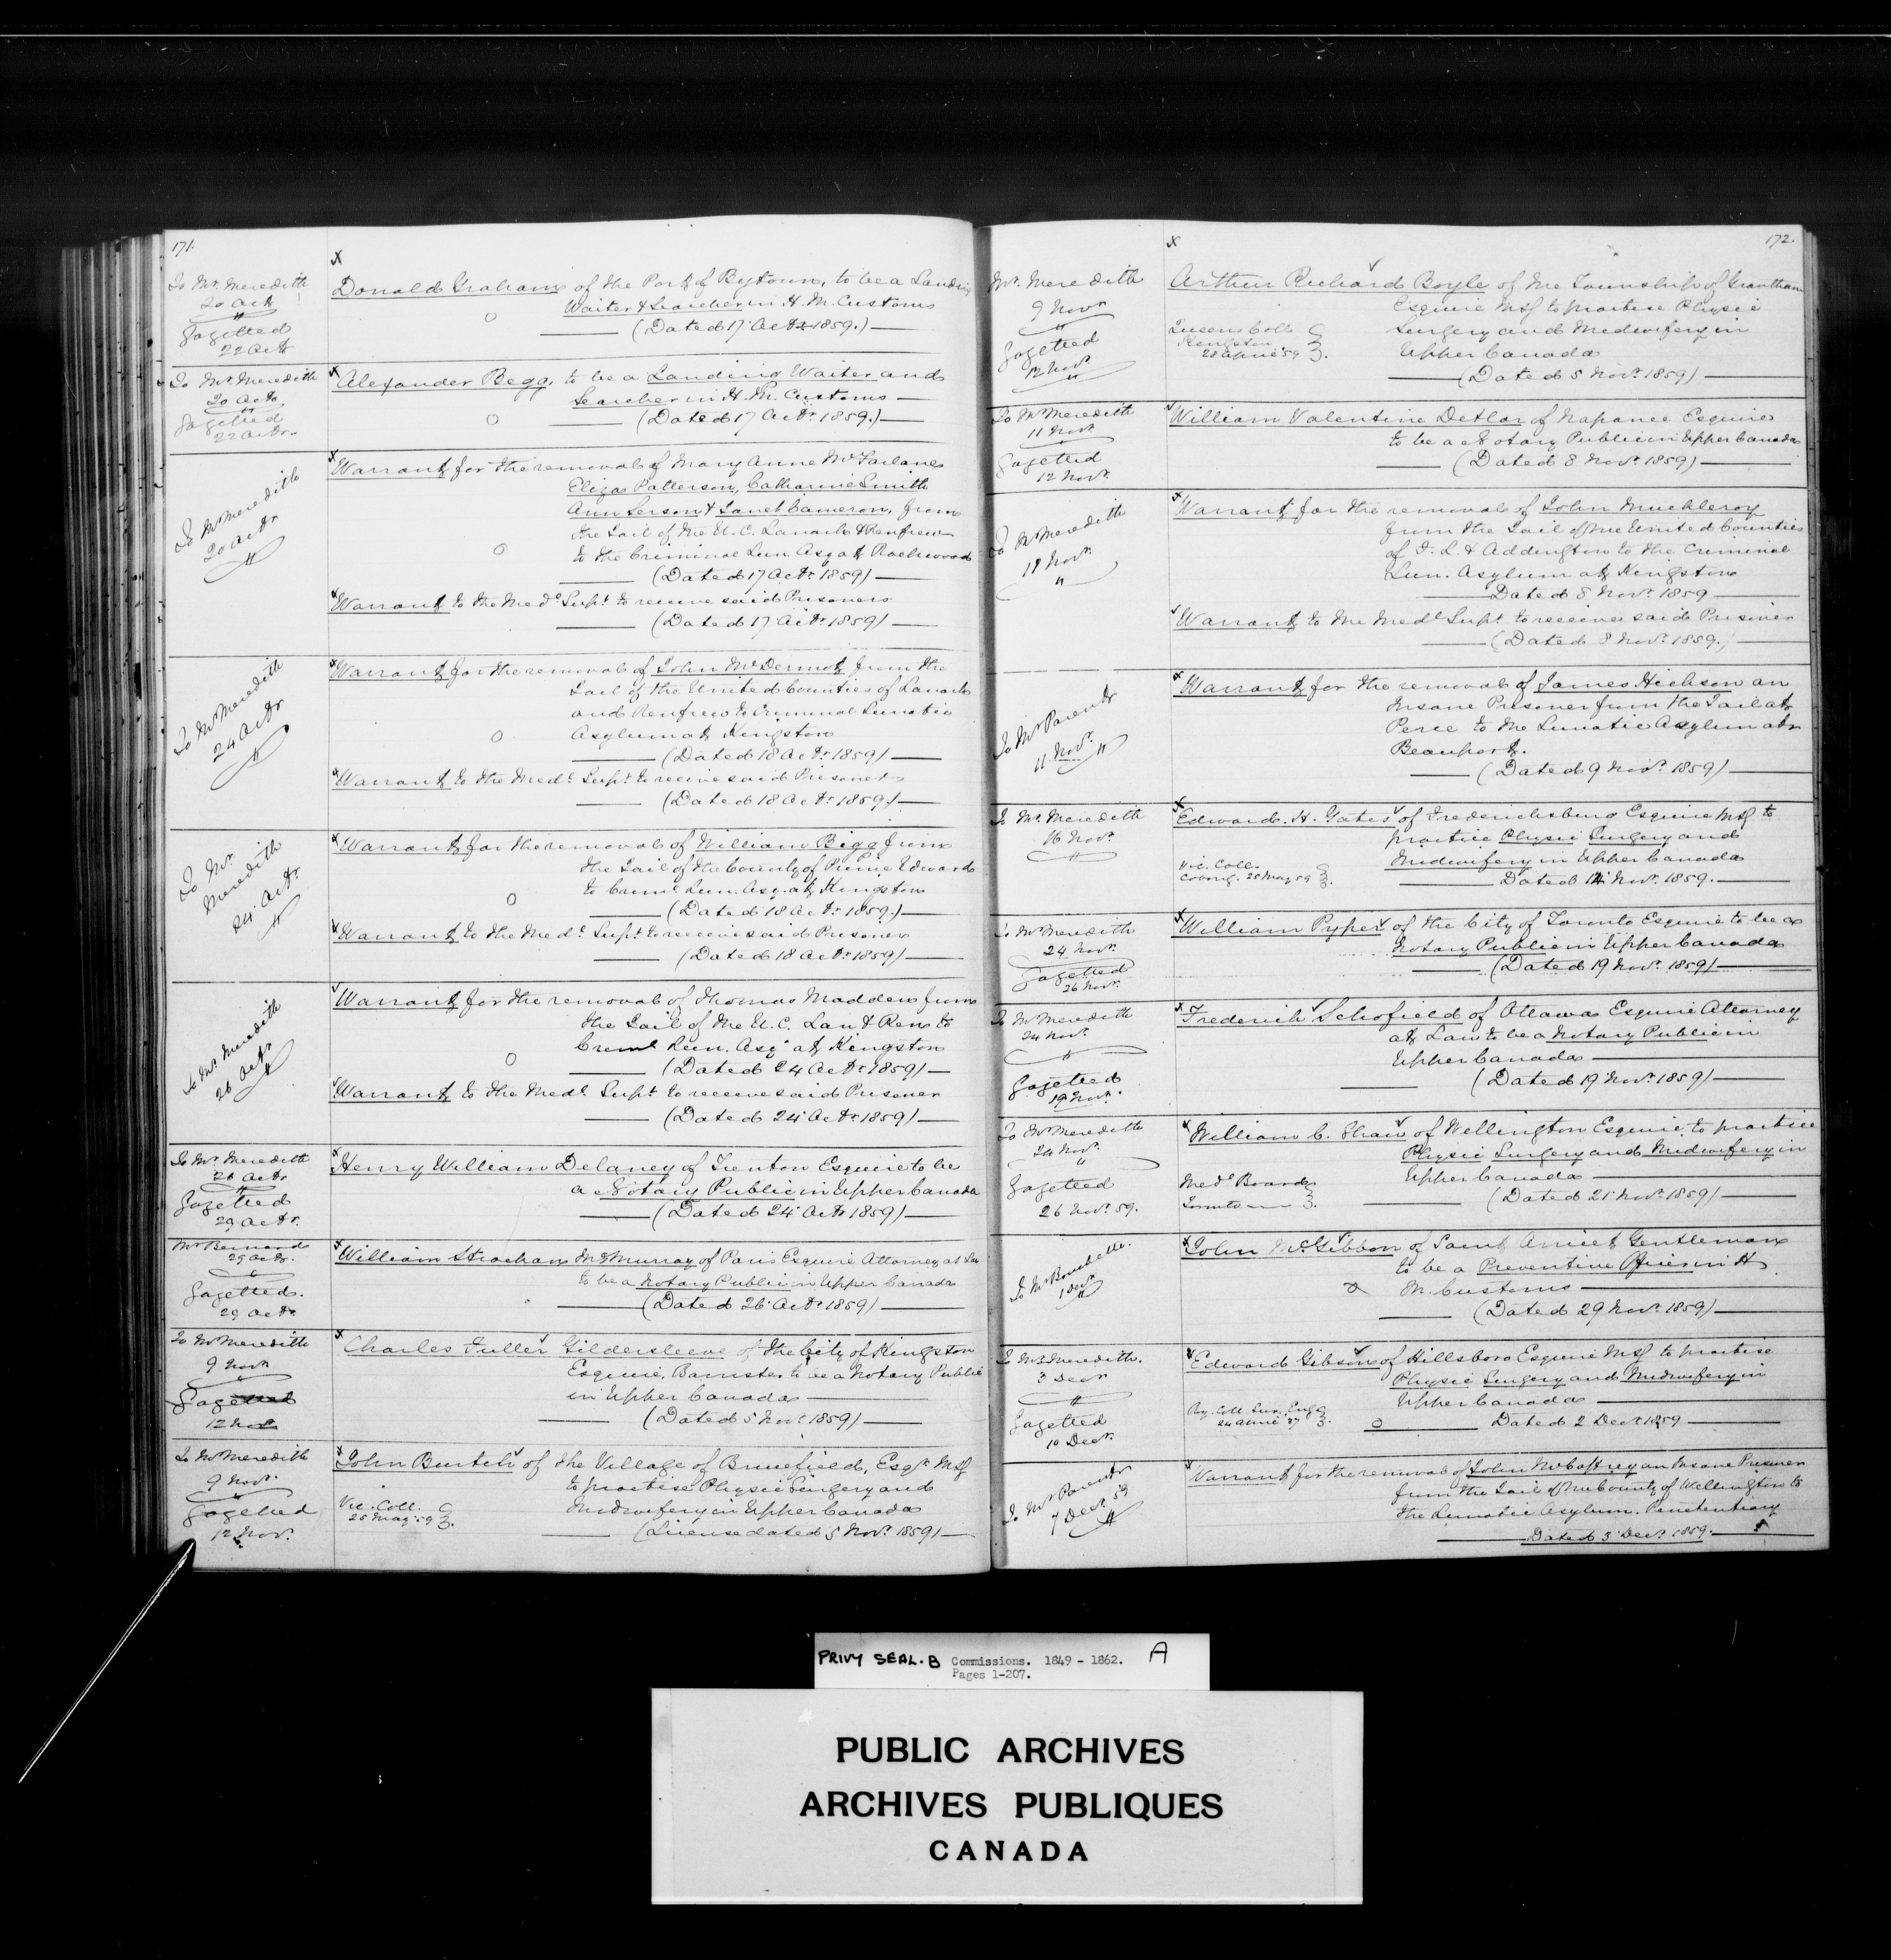 171.
X
To Mr. Meredith
20 Octr
Gazetted
22 Octr
Donald Graham of the Port of Bytown, to be a Landing
Waiter & Searcher in H. M. Customs
(Dated 17 Octr 1859.)
To Mr. Meredith
20 Octr
Gazetted
22 Octr.
Alexander Begg, to be a Landing Waiter and
Searcher in H. M. Customs
(Dated 17 Octr. 1859.)
To Mr Meredith
20 Octr
Warrant for the removal of Mary Anne McFarlane
Eliza Patterson, Catharine Smith
Ann & Janet Cameron, from
the Gail of the U. C. Lanark & Renfrew
to the Criminal Lun. Asy at Rockwood
(Dated 17 Octr. 1859)
Warrant to the Medl Supt. to receive said Prisoners
(Dated 17 Octr. 1859)
To Mr Meredith
24 Octr
Warrant for the removal of John McDermot from the
Gail of the United Counties of Lanark
and Renfrew to Criminal Lunatic
Asylum at Kingston
(Dated 18 Octr. 1859)
Warrant to the Medl. Supt. to receive said Prisoner
(Dated 18 Octr. 1859)
To Mr.
Meredith
24 Octr.
Warrant for the removal of William Bigg from
the Gail of the County of Prince Edward
to Criml. Lun. Asy. at Kingston
(Dated 18 Octr. 1859.)
Warrant to the Medl. Supt. to receive said Prisoner
(Dated 18 Octr. 1859)
To Mr. Meredith
26 Octr
Warrant for the removal of Thomas Madden from
the Gail of the U. C. Lan & Ren to
Criml Lun. Asy. at Kingston
(Dated 24 Octr. 1859)
Warrant to the Medl. Supt. to receive said Prisoner
(Dated 24 Octr. 1859)
To Mr. Meredith
28 Octr
Gazetted
29 Octr.
Henry William Delaney of Trenton Esquire to be
a Notary Public in Upper Canada
(Dated 24 Octr 1859)
Mr Bernard
29 Octr.
Gazetted.
29 Octr
William Strachan McMurray of Paris Esquire Attorney at Law
to be a Notary Public in Upper Canada
(Dated 26 Octr. 1859)
To Mr Meredith
9 Novr
Gazetted
12 Nov
Charles Fuller Gildersleeve of the City of Kingston
Esquire, Barrister to be a Notary Public
in Upper Canada
(Dated 5 Novr. 1859)
To Mr Meredith
9 Novr.
Gazetted
12 Novr.
John Burtch of the Village of Brucefield, Esqr. Msf
to practise Physic Surgery and
Midwifery in Upper Canada
Vic. Coll.
25 May 59
(License dated 5 Novr. 1859)
172.
X
Mr. Meredith
9 Novr
Gazetted
12 Novr
Arthur Richard Boyle of the Township of Grantham
Esquire Msf to practise Physic
Surgery and Midwifery in
Upper Canada
Queens Coll.
Kingston
28 April 59
(Dated 5 Novr. 1859)
To Mr Meredith
11 Novr
Gazetted
12 Novr.
William Valentine Detlar of Napanee Esquire
to be a Notary Public in Upper Canada
(Dated 8 Novr. 1859)
To Mr Meredith
11 Novr.
Warrant for the removal of John Muckleroy
from the Gail of the United Counties
of F. L. & Addington to the Criminal
Lun. Asylum at Kingston
Dated 8 Novr. 1859
Warrant to the Medl Supt. to receive said Prisoner
(Dated 8 Novr. 1859.)
To Mr Parent
11 Novr.
Warrant for the removal of James Hickson an
Insane Prisoner from the Gail at
Perce to the Lunatic Asylum at
Beauport.
(Dated 9 Novr. 1859)
To Mr. Meredith
16 Novr.
Edward. H. Gates of Fredericksburg Esquire Msf to
practise Physic Surgery and
Midwifery in Upper Canada
Vic. Coll.
Cobourg. 25 May 59
Dated 14 Novr. 1859.
To Mr Meredith
24 Novr.
Gazetted
26 Novr.
William Pyper of the City of Toronto Esquire to be a
Notary Public in Upper Canada
(Dated 19 Novr. 1859)
To Mr Meredith
24 Novr.
Gazetted
19 Novr.
Frederick Schofield of Ottawa Esquire Attorney
at Law to be a Notary Public in
Upper Canada
(Dated 19 Novr. 1859)
To Mr Meredith
24 Novr.
Gazetted
26 Novr. 59.
William C. Shaw of Wellington Esquire to practise
Physic Surgery and Midwifery in
Upper Canada
Medl Board
Toronto
(Dated 21 Novr. 1859)
To Mr
1 Decr
John McGibbon of Saint Anicet Gentleman
to be a Preventive Officer in H
M. Customs
(Dated 29 Novr. 1859)
To Mr. Meredith.
3 Decr
Gazetted
10 Decr.
Edward Gibson of Hillsboro Esquire Msf to practise
Physic Surgery and Midwifery in
Upper Canada
Ry. Coll. Sur. Eng
24 April 57
Dated 2 Decr. 1859
To Mr Parent
7 Decr 59
Warrant for the removal of John McCaffrey an Insane Prisoner
from the Gail of the County of Wellington to
the Lunatic Asylum. Penetentiary
Dated 3 Decr. 1859.
PRIVY SEAL. B Commissions. 1849 - 1862. A
Pages 1-207.
PUBLIC ARCHIVES
ARCHIVES PUBLIQUES
CANADA